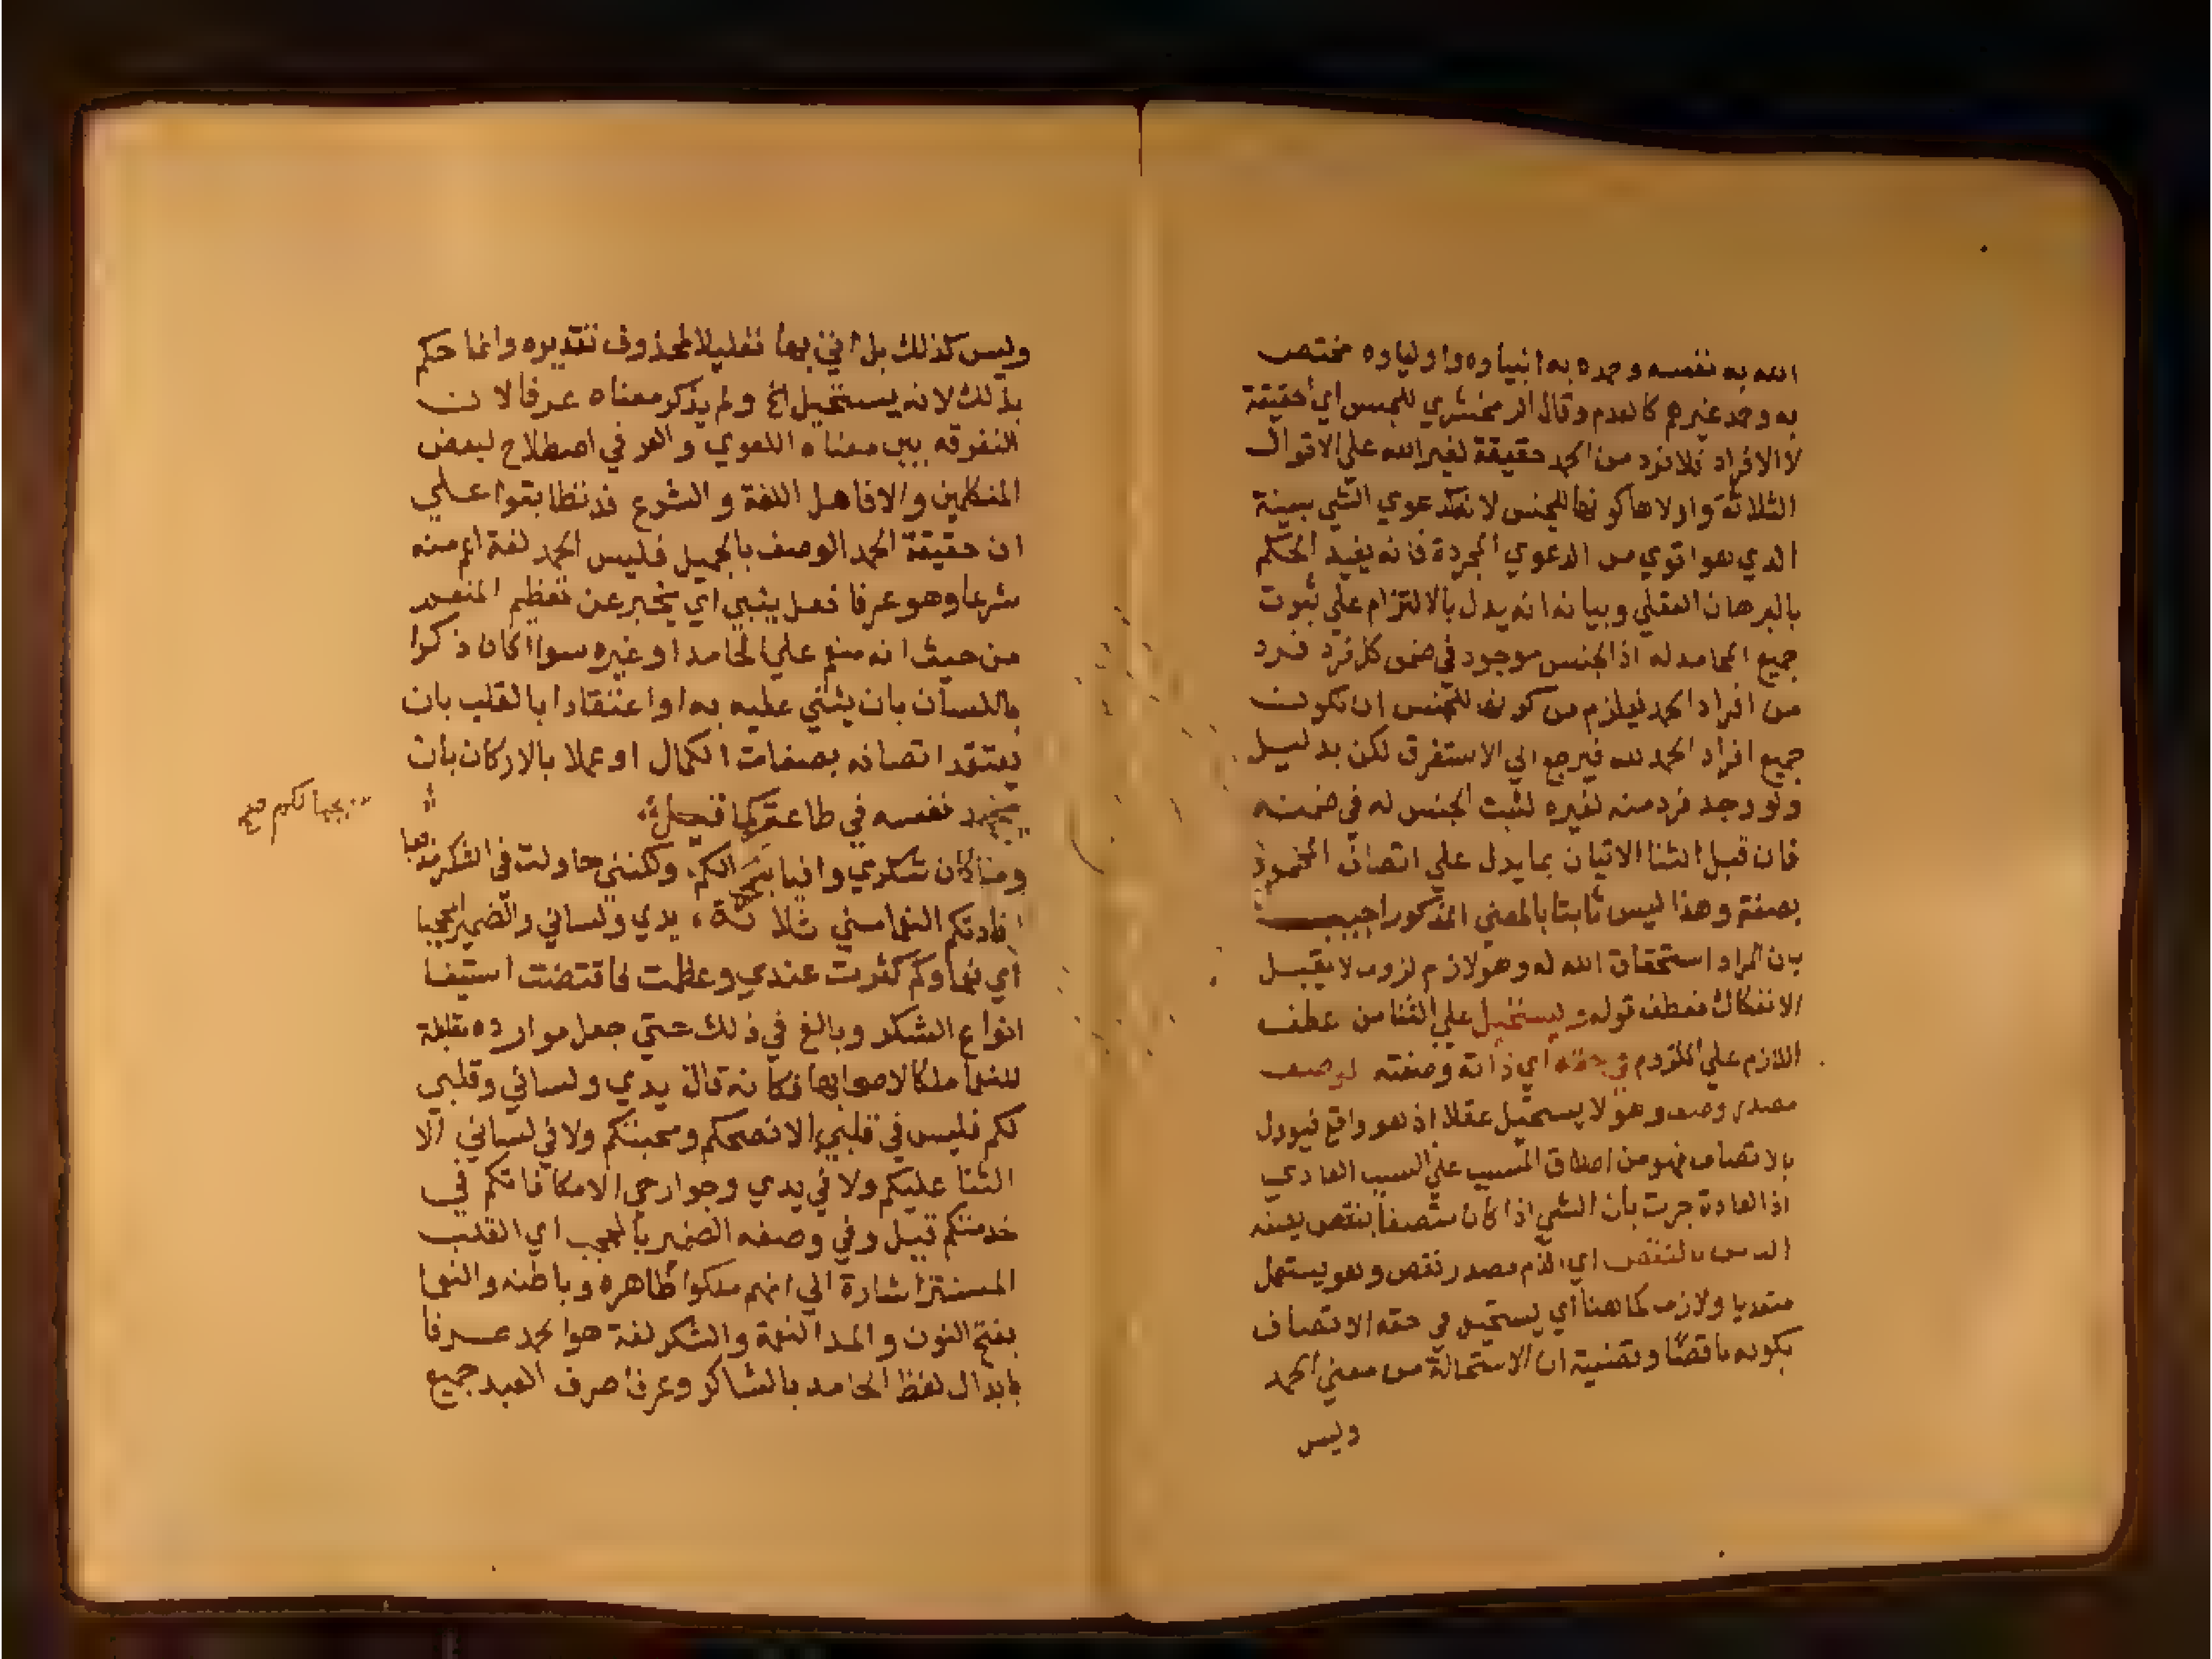 الله به نفسه وحمده به انبياوه واولياوه مختص
به وحمد غيرهم كالعدم وقال الزمخشري للجنس اي حقيقة
لا الافراد فلا فرد من الحمد حقيقة لغير الله علي الاقوال
الثلاثة واولاها كونها للجنس لانه كدعوي الشي ببينة
الذي هو اقوي من الدعوي المجردة فانه يفيد الحكم
بالبرهان العقلي وبيانه انه يدل بالالتزام علي ثبوت
جميع المحامد له اذ الجنس موجود في ضمن كل فرد فرد
من افراد الحمد فيلزم من كونه للجنس ان تكون
جميع افراد الحمد لله فيرجع الي الاستغرق لكن بدليل
ولو وجد فرد منه لغيره لثبت الجنس له في ضمنه
فان قيل الثنا الاتيان بما يدل علي اتصاف المحمود
بصفته وهذا ليس ثابتا بالمعني المذكور اجيب
بان المراد استحقاق الله له وهو لازم لزوما لا يقبل
الانفكاك فعطف قوله ويستحيل علي الثنا من عطف
اللازم علي الملزوم في حقه اي ذاته وصفته لوصف
مصدر وصف وهو لا يستحيل عقلا اذ هو واقع فيودل
بالاتصاف فهو من اطلاق المسبب علي السبب العادي
اذ العادة جرت بان الشي اذا كان متصفا بنقص يصفه
الناس بالنقص اي الذم مصدر نقص وهو يستعمل
متعديا ولازما كما هنا اي يستحيل في حقه الاتصاف
بكونه ناقصا وقضيته ان الاستحالة من معني الحمد
وليس
وليس كذلك بل اتي بها تعليلا لمحذوف تقديره وانما حكم
بذلك لانه يستحيل الخ ولم يذكر معناه عرفا لان
التفرقه بين معناه اللغوي والعرفي اصطلاح لبعض
المتكلمين والا فاهل اللغة والشرع قد تطابقوا علي
ان حقيقة الحمد الوصف بالجميل فليس الحمد لغة اعم منه
شرعا وهو عرفا فعل ينبي اي يخبر عن تعظيم المنعم
من حيث انه منعم علي الحامد او غيره سوا اكان ذكرا
باللسان بان يثني عليه به او اعتقادا بالقلب بان
يعتقد اتصافه بصفات الكمال او عملا بالاركان بان
يجهد نفسه في طاعته كما قيل
وما كان شكري وافيا بنوالكم ولكنني حاولت في الشكر مذهبا
افادتكم النعما مني ثلاثة يدي ولساني والضمير المحجبا
اي نعما وكم كثرت عندي وعظمت فاقتضت استيفا
انواع الشكر وبالغ في ذلك حتي جعل موارده مقابلة
للنعما ملكا لاصحابها فكانه قال يدي ولساني وقلبي
لكم فليس في قلبي الا نصحكم ومحبتكم ولا في لساني الا
الثنا عليكم ولا في يدي وجوارحي الا مكافاتكم في
خدمتكم قيل وفي وصفه الضمير بالمحجب اي القلب
المستتر اشارة الي انهم ملكوا ظاهره وباطنه والنعما
بفتح النون والمد النعمة والشكر لغة هو الحمد عرفا
بابدال لفظ الحامد بالشاكر وعرفا صرف العبد جميع